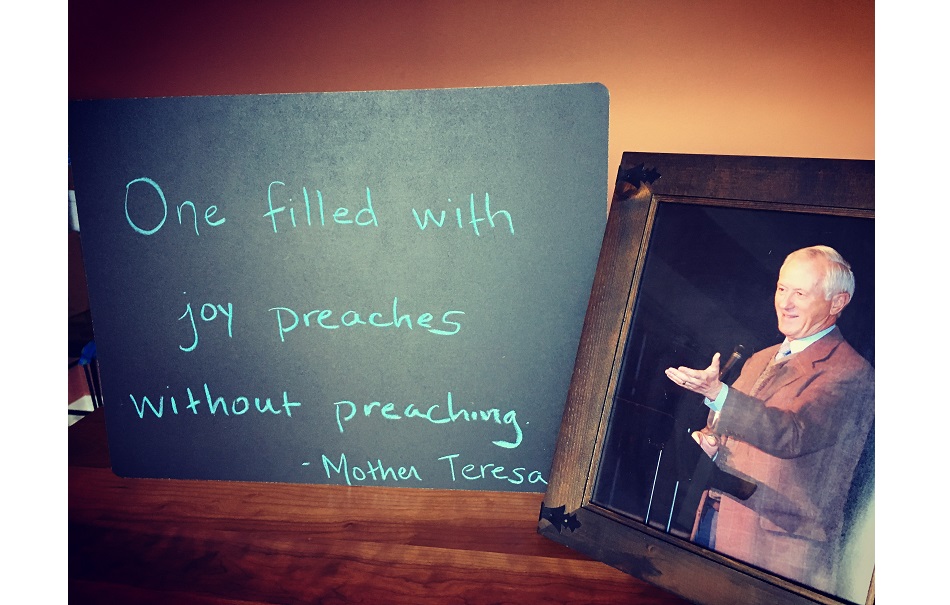 One filled with
joy preaches
without preaching.
- Mother Teresa